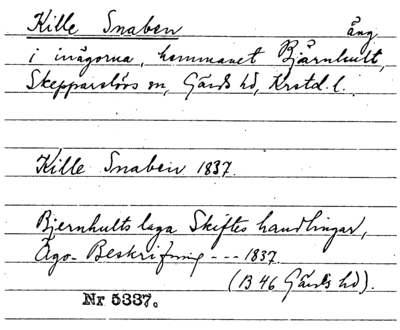 Kille Snaben äng
i inägorna, hemmanet Bjärnhult,
Skepparslövs sn, Gärds hd, Krstd. l.
Kille Snaben 1837.
Bjernhults laga Skiftes handlingar,
Ägo-Beskrifning --- 1837.
(B 46 Gärds hd).
Nr 5337.